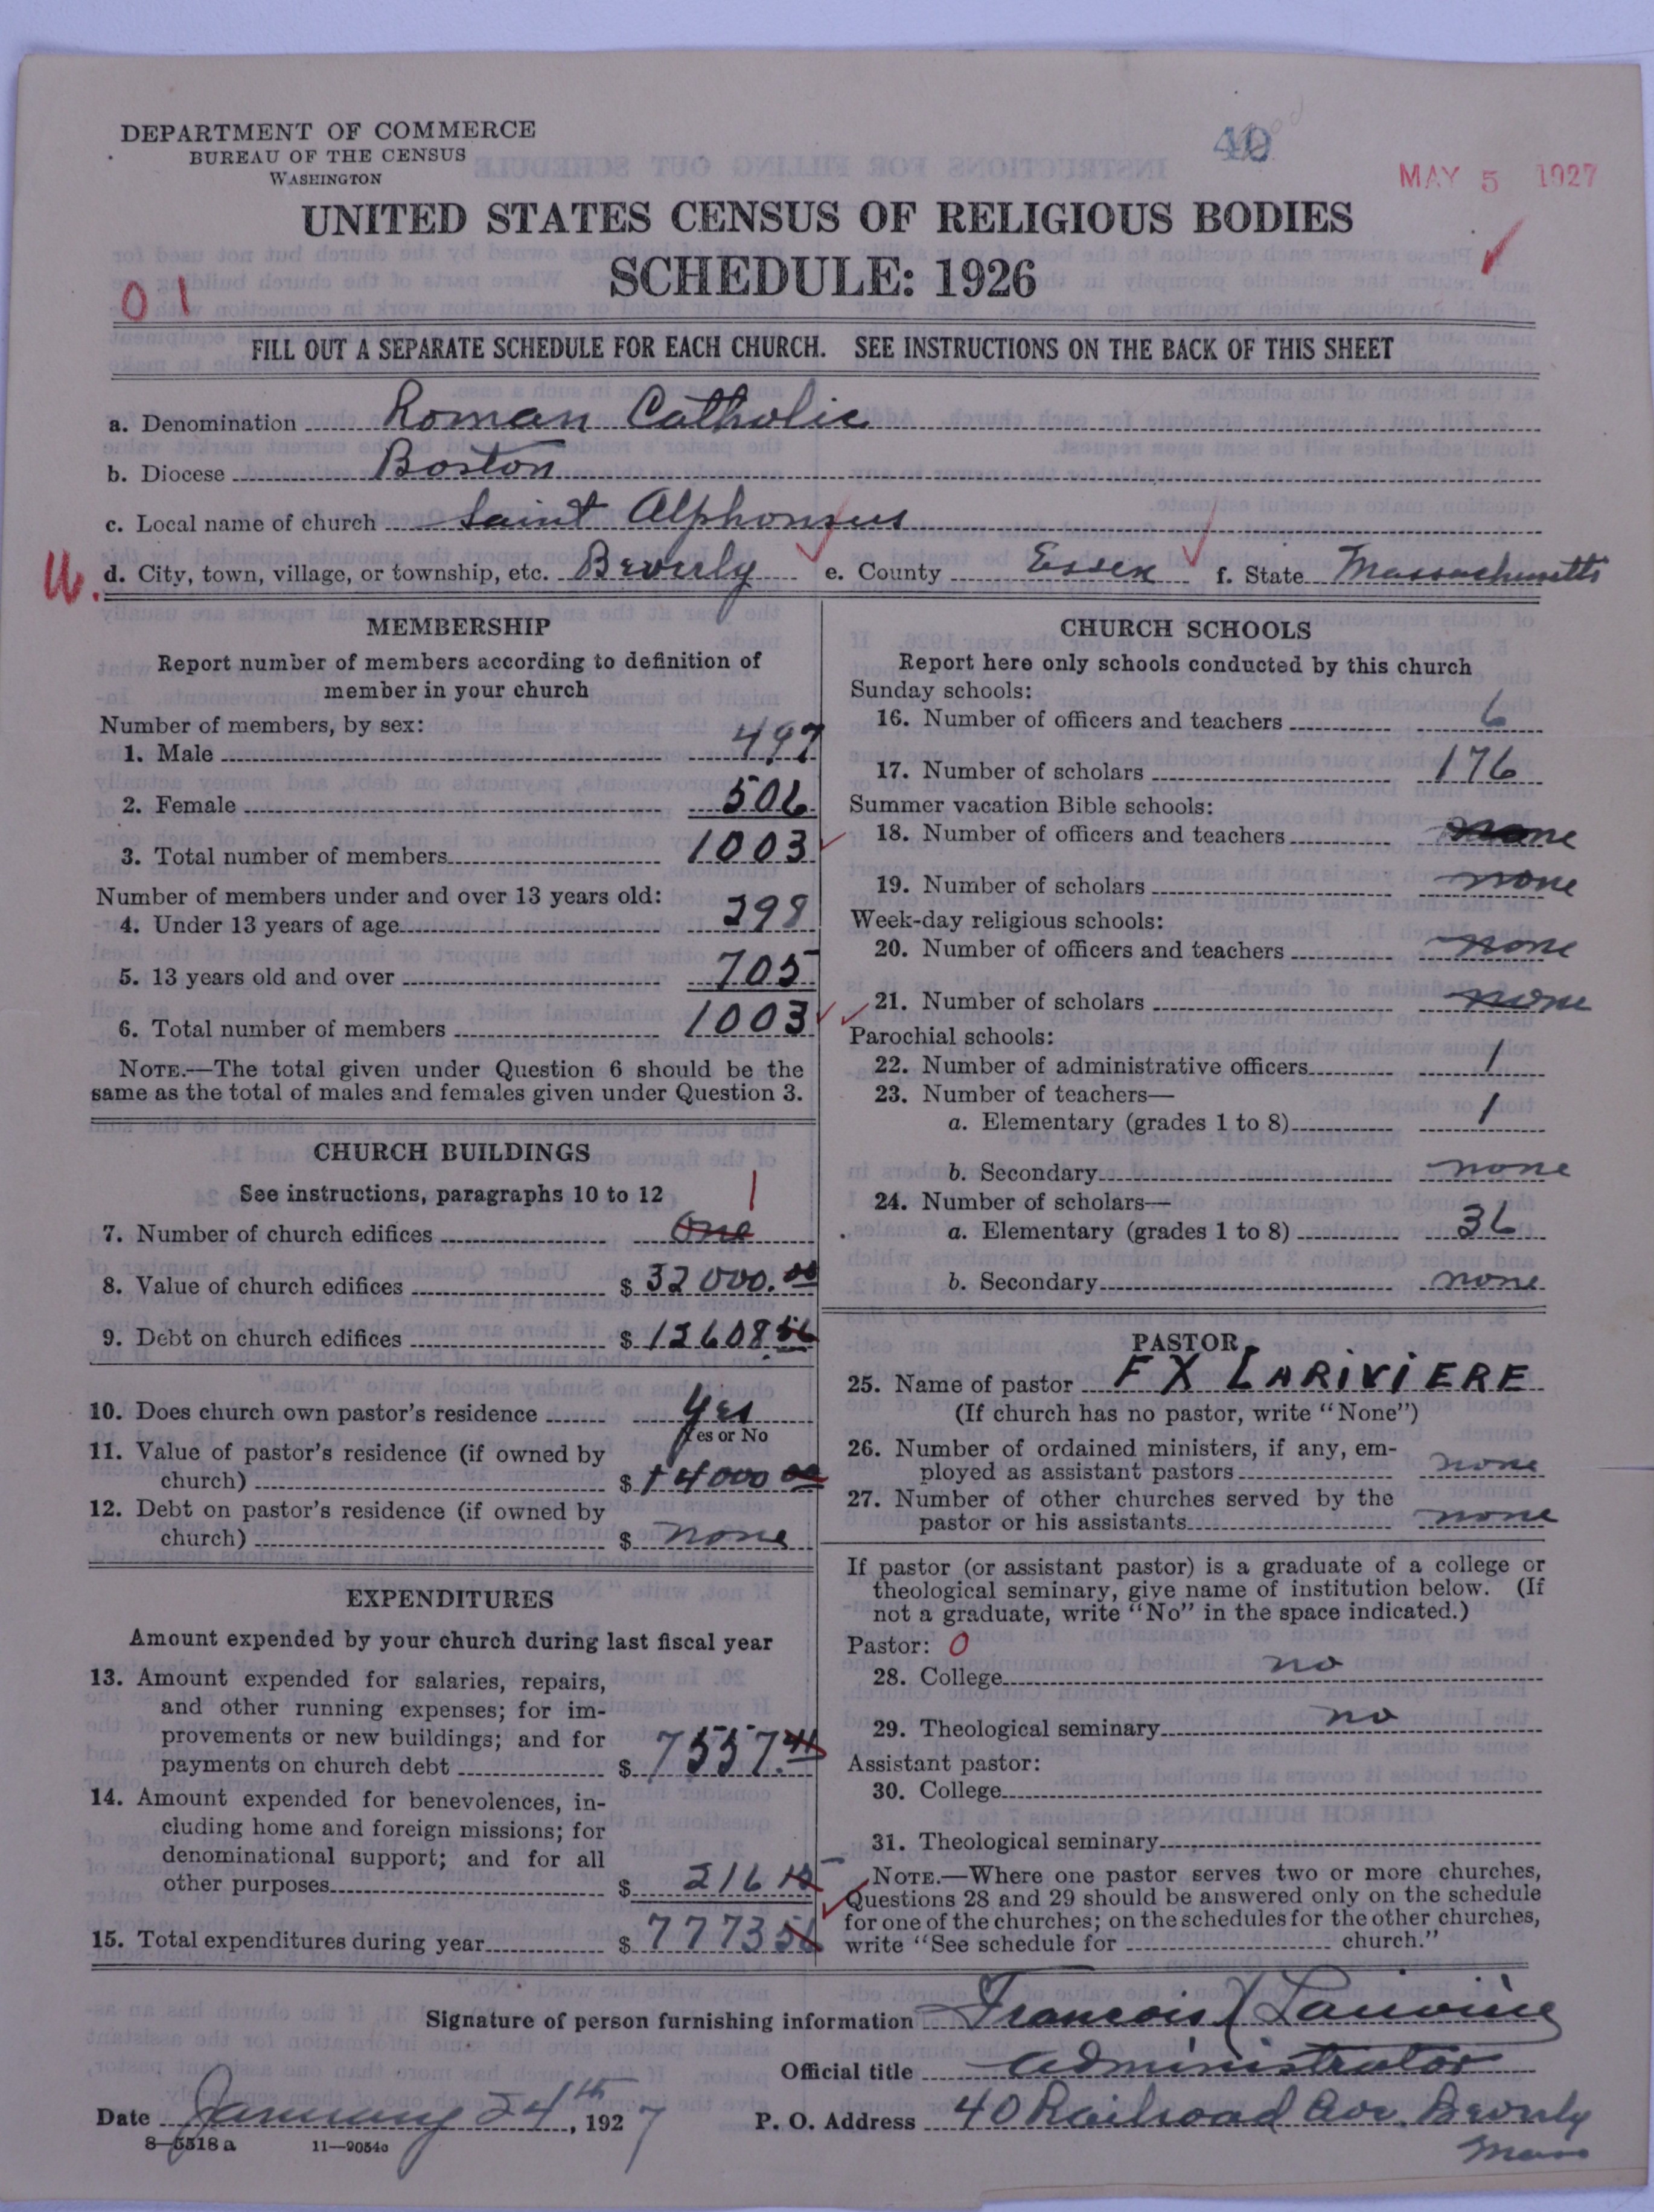 DEPARTMENT OF COMMERCE
BUREAU OF THE CENSUS
WASHINGTON
40
MAY 5 1927
UNITED STATES CENSUS OF RELIGIOUS BODIES
SCHEDULE: 1926
01
FILL OUT A SEPARATE SCHEDULE FOR EACH CHURCH. SEE INSTRUCTIONS ON THE BACK OF THIS SHEET
a. Denomination Roman Catholic
b. Diocese Boston
c. Local name of church Saint Alphonsus
U. d. City, town, village, or township, etc. Beverly e. County Essex f. State Massachusetts
MEMBERSHIP
Report number of members according to definition of
member in your church
Number of members, by sex:
1. Male 497
2. Female 506
3. Total number of members 1003
Number of members under and over 13 years old:
4. Under 13 years of age 298
5. 13 years old and over 705
6. Total number of members 1003
NOTE.—The total given under Question 6 should be the
same as the total of males and females given under Question 3.
CHURCH BUILDINGS
See instructions, paragraphs 10 to 12
1
7. Number of church edifices One
8. Value of church edifices $ 32000.00
9. Debt on church edifices $ 12608 56
10. Does church own pastor's residence Yes
Yes or No
11. Value of pastor's residence (if owned by
church) $ 14000 00
12. Debt on pastor's residence (if owned by
church) $ none
EXPENDITURES
Amount expended by your church during last fiscal year
13. Amount expended for salaries, repairs,
and other running expenses; for im-
provements or new buildings; and for
payments on church debt $ 7557.41
14. Amount expended for benevolences, in-
cluding home and foreign missions; for
denominational support; and for all
other purposes $ 216 15
15. Total expenditures during year $ 7773 56
CHURCH SCHOOLS
Report here only schools conducted by this church
Sunday schools:
16. Number of officers and teachers 6
17. Number of scholars 176
Summer vacation Bible schools:
18. Number of officers and teachers none
19. Number of scholars none
Week-day religious schools:
20. Number of officers and teachers none
21. Number of scholars none
Parochial schools:
22. Number of administrative officers 1
23. Number of teachers—
a. Elementary (grades 1 to 8) 1
b. Secondary none
24. Number of scholars—
a. Elementary (grades 1 to 8) 36
b. Secondary none
PASTOR
25. Name of pastor F X LARIVIERE
(If church has no pastor, write "None")
26. Number of ordained ministers, if any, em-
ployed as assistant pastors none
27. Number of other churches served by the
pastor or his assistants none
If pastor (or assistant pastor) is a graduate of a college or
theological seminary, give name of institution below. (If
not a graduate, write "No" in the space indicated.)
Pastor: 0
28. College no
29. Theological seminary no
Assistant pastor:
30. College
31. Theological seminary
NOTE.—Where one pastor serves two or more churches,
Questions 28 and 29 should be answered only on the schedule
for one of the churches; on the schedules for the other churches,
write "See schedule for church."
Signature of person furnishing information Francois X Lariviere
Official title administrator
Date January 24th, 1927 P. O. Address 40 Railroad Ave. Beverly
Mass
8—5518 a 11—9054c